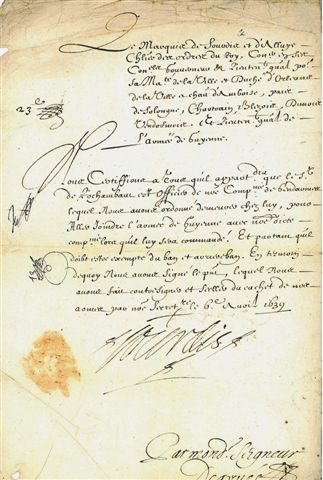 Le Marquis de Sourdis et d'Alluye
Chlier des ordres du Roy, Conser en ses
Conelz Gouverneur & Lieutent gnal po
sa Mate de la Ville et Duché d'Orleans
de la Ville & chau d'Amboise, pais
de Solongne, Chartrain, Blezois, Dunois
Vendosmois, Et Lieuten gnal de
L'armée de Guyenne.
23e
Nous Certiffions a tous qu'il appartdra que le Sr
de Rochambau est officier de nos Compnie de Gendarmes
lequel Nous avons ordonné chez luy, pour
Aller Joindre l'armée de Guyenne avec nos
compnie lors quil luy sera commandé. Et partant quil
doibt estre exempt du ban et arriereban. En tesmoin
dequoy Nous avons signé le pnt, lequel Nous
avons fait contresigner et séeller du cachet de nos
armes par nos Secretre le 6e Aoust 1639
Sourdis
Par mond. Seigneur